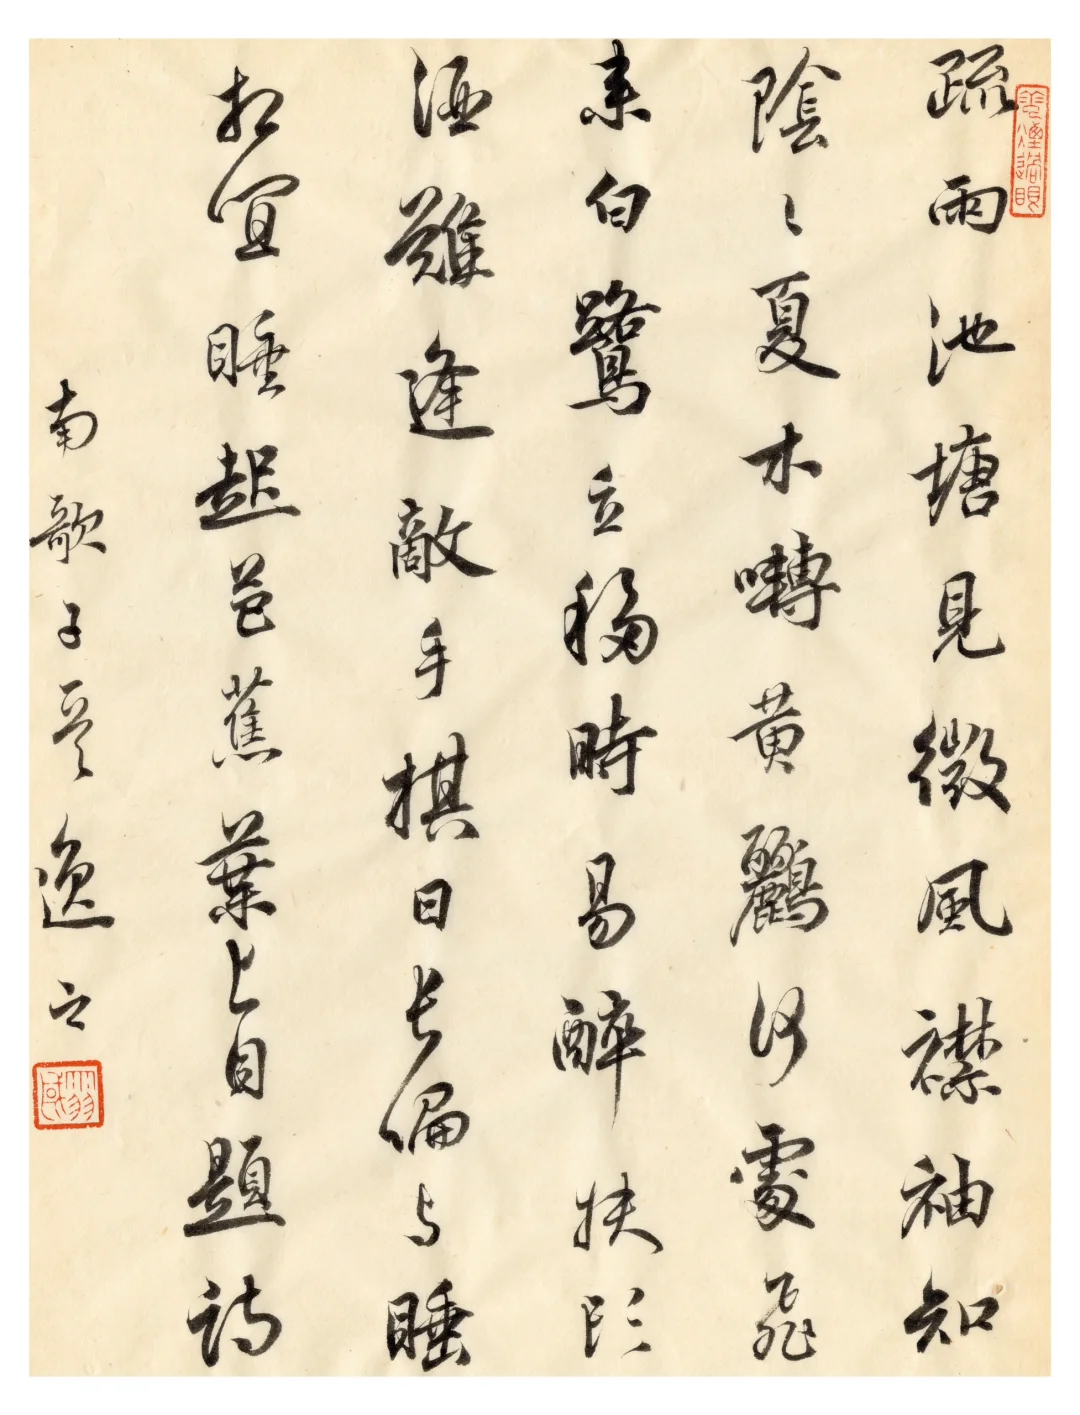 雲煙過眼
疏雨池塘見微風襟袖知
陰〻夏木囀黃鸝何處飛
來白鷺立移時易醉扶頭
酒難逢敵手棋日長偏与睡
相宜睡起芭蕉葉上自題詩
南歌子 逸之